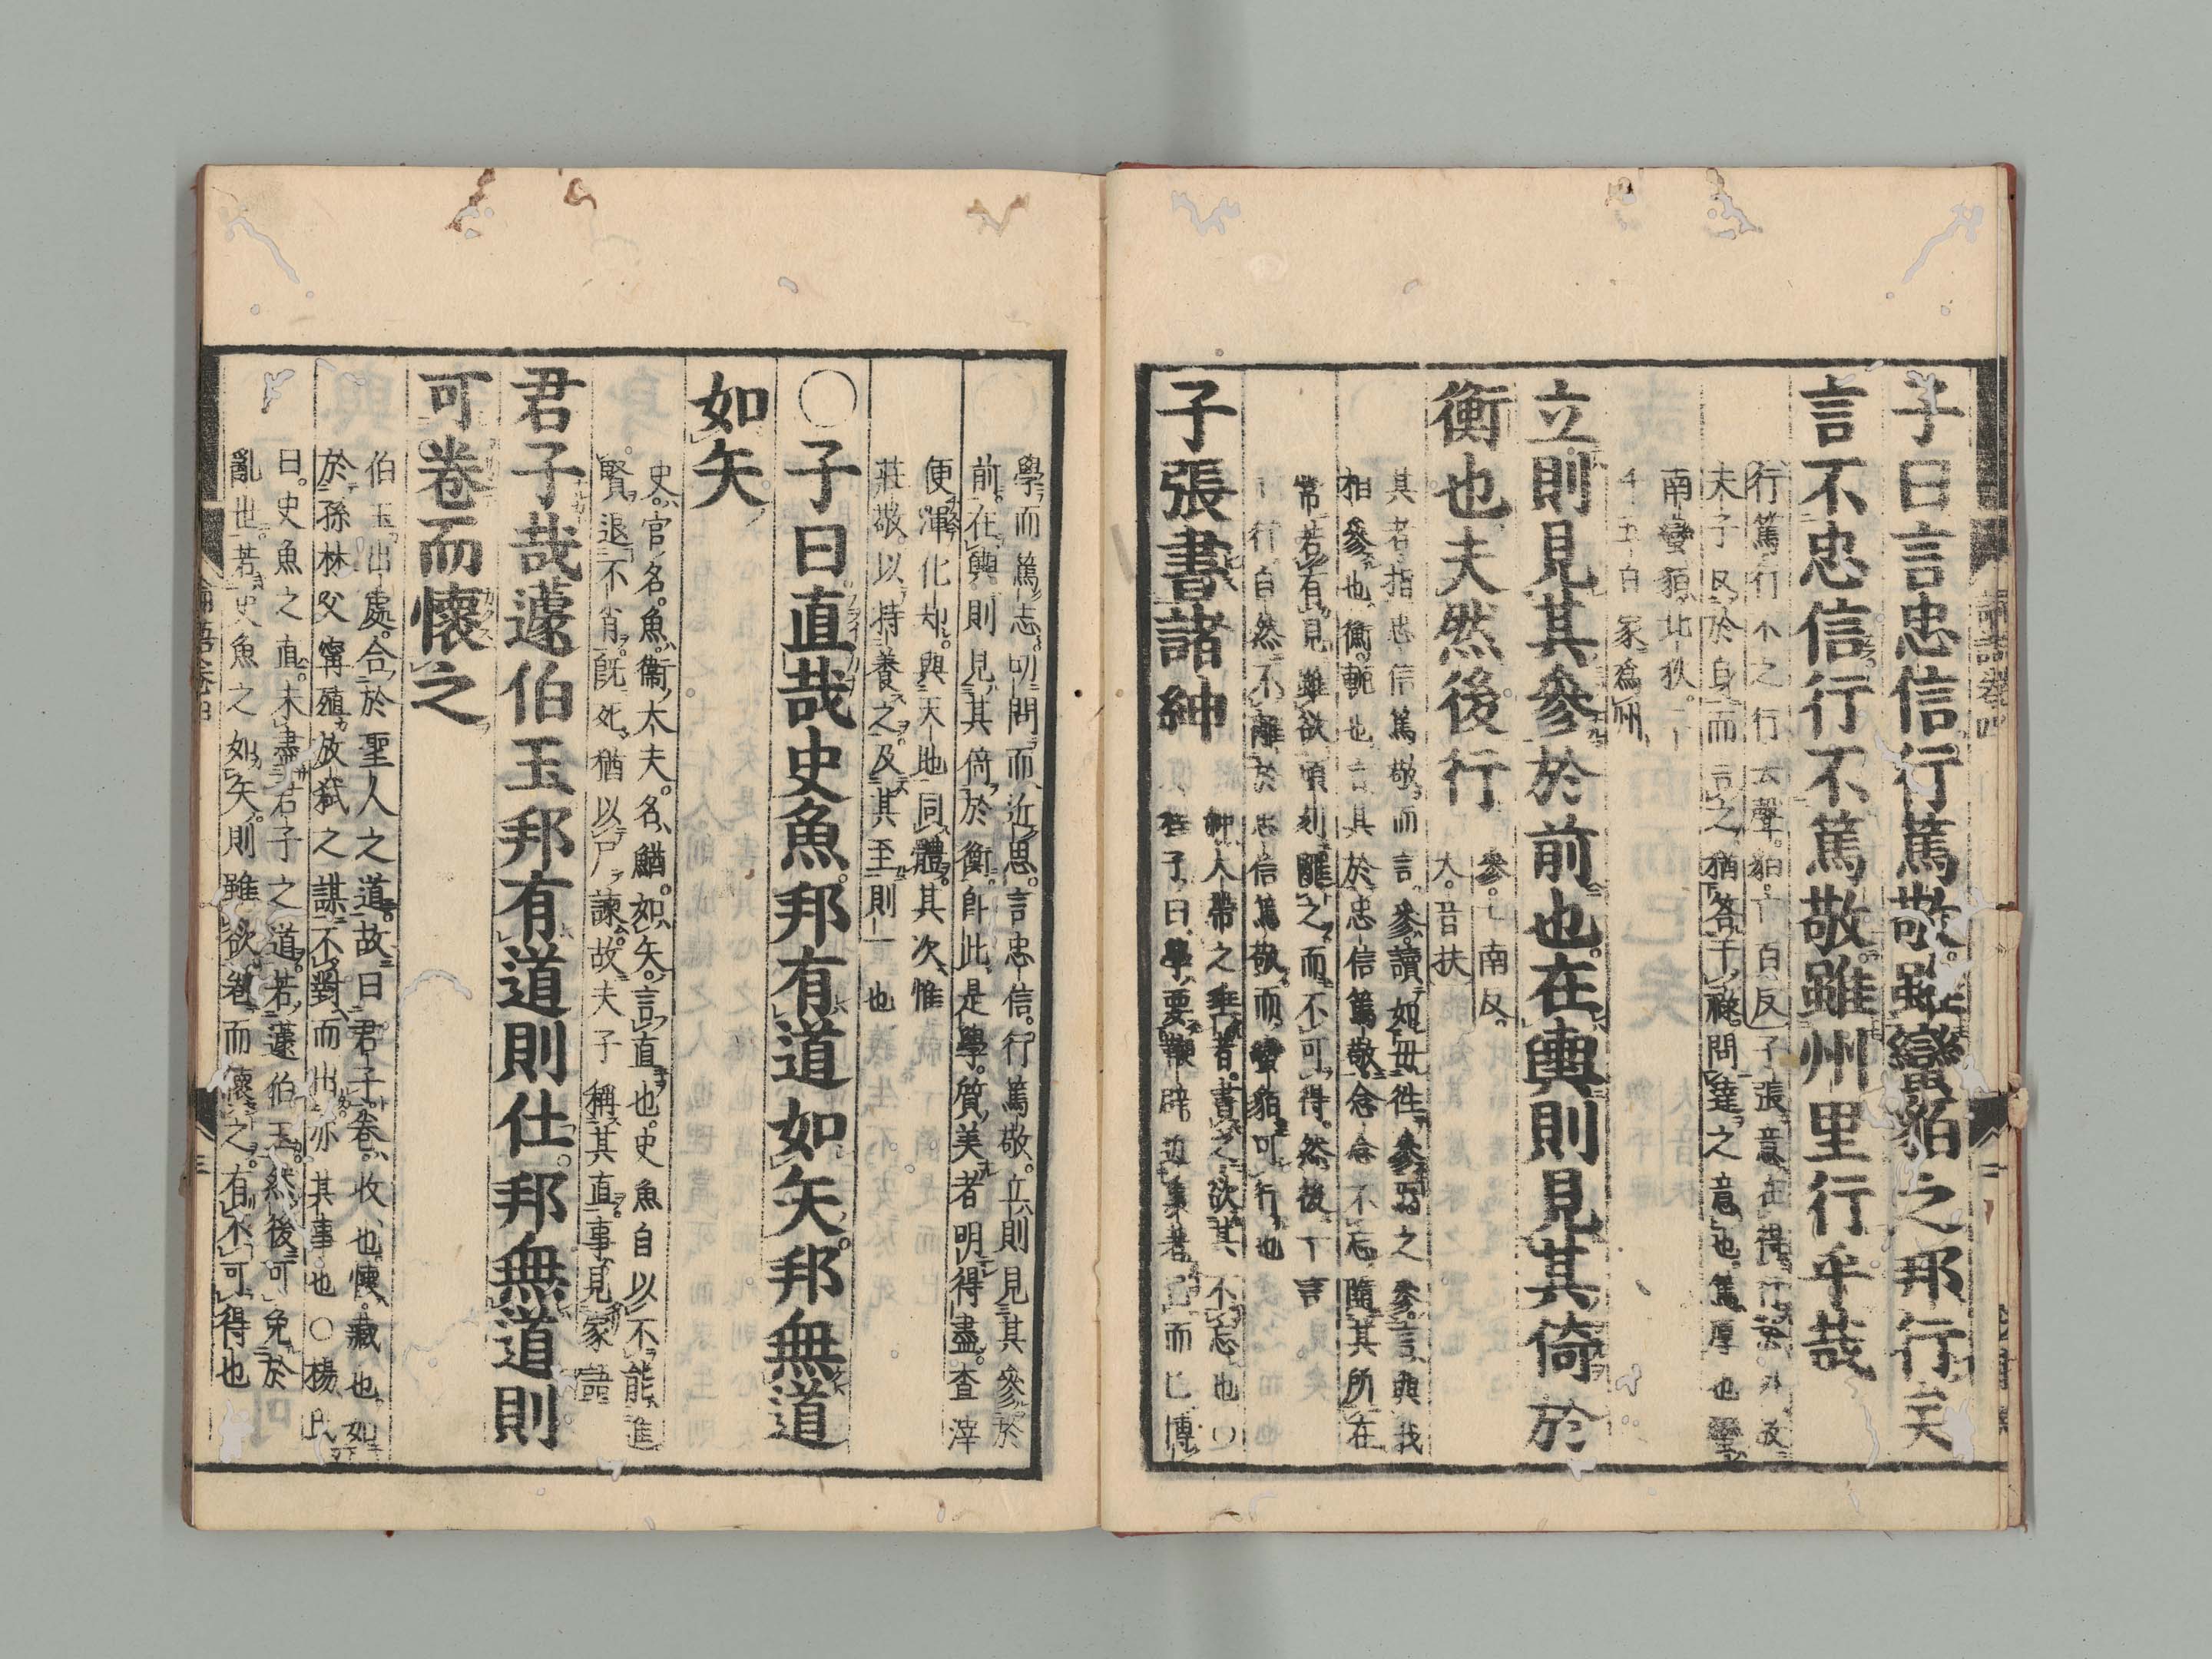 子曰言忠信行篤敬雖蠻貊之邦行矣
言不忠信行不篤敬雖州里行乎哉
行篤行不之行去聲貊亡百反子張意在得行於外故
夫子反於身而言之猶答干祿問達之意也篤厚也蠻
南蠻貊北狄二千
五百家爲州
立則見其參於前也在輿則見其倚於
衡也夫然後行
參七南反
夫音扶
其者指忠信篤敬而言參讀如毋往參焉之參言與我
相參也衡軛也言其於忠信篤敬念念不忘隨其所在
常若有見雖欲頃刻離之而不可得然後一言
一行自然不離於忠信篤敬而蠻貊可行也
子張書諸紳
紳大帶之垂者書之欲其不忘也○
程子曰學要鞭辟近裏著己而已博
學而篤志切問而近思言忠信行篤敬立則見其參於
前在輿則見其倚於衡卽此是學質美者明得盡査滓
便渾化却與天地同體其次惟
莊敬以持養之及其至則一也
○子曰直哉史魚邦有道如矢邦無道
如矢
史官名魚衞大夫名鰌如矢言直也史魚自以不能進
賢退不肖既死猶以尸諫故夫子稱其直事見家語
君子哉蘧伯玉邦有道則仕邦無道則
可卷而懷之
伯玉出處合於聖人之道故曰君子卷收也懷藏也如
於孫林父甯殖放弑之謀不對而出亦其事也○楊氏
曰史魚之直未盡君子之道若蘧伯玉然後可免於
亂世若史魚之如矢則雖欲卷而懷之有不可得也
論語卷四
三